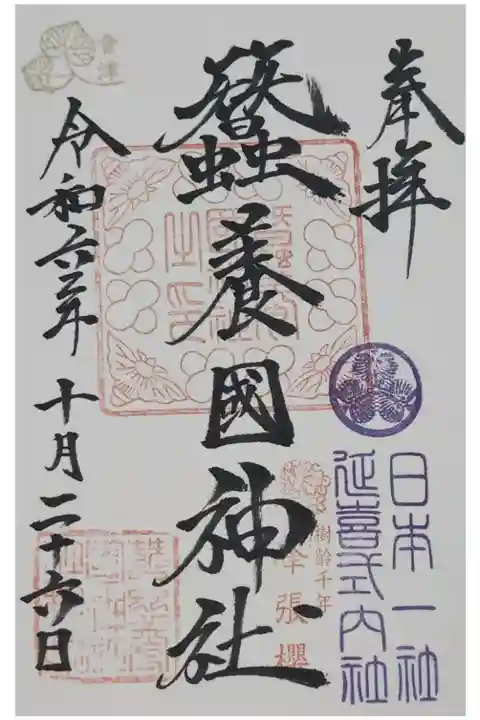 奉拝
日本一社
延喜式内社
樹齢千年
峰張櫻
蠶養國神社
會津
令和六年十月二十六日